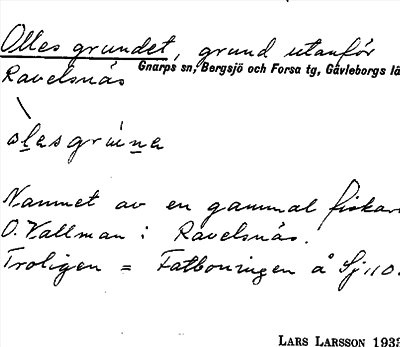 Olles grundet, grund utanför
Gnarps sn, Bergsjö och Forsa tg, Gävleborgs lä
Ravelsnäs
Namnet av en gammal fiskar
O. Vallman i Ravelsnäs.
Troligen = Fatboningen å Sj 110.
LARS LARSSON 1933